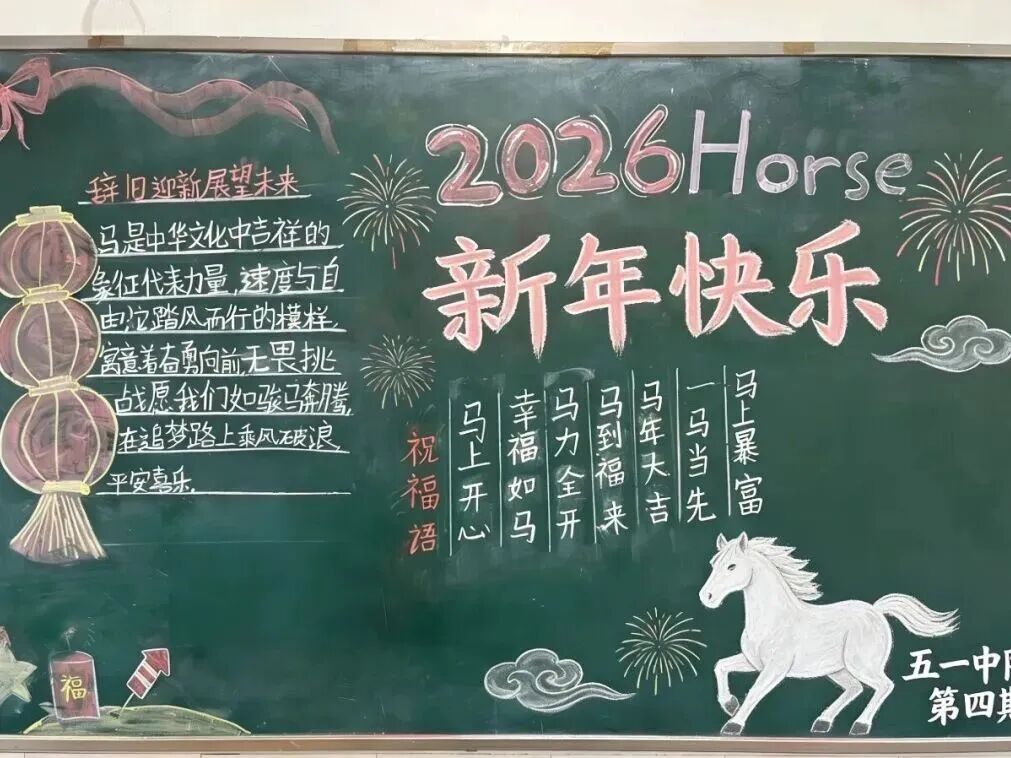 辞旧迎新展望未来
马是中华文化中吉祥的
象征代表力量,速度与自
由,它踏风而行的模样,
寓意着奋勇向前,无畏挑
战愿我们如骏马奔腾,
在追梦路上乘风破浪,
平安喜乐.
2026Horse
新年快乐
祝福语
马上开心
幸福如马
马力全开
马到福来
马年大吉
一马当先
马上暴富
福
五一中队
第四期